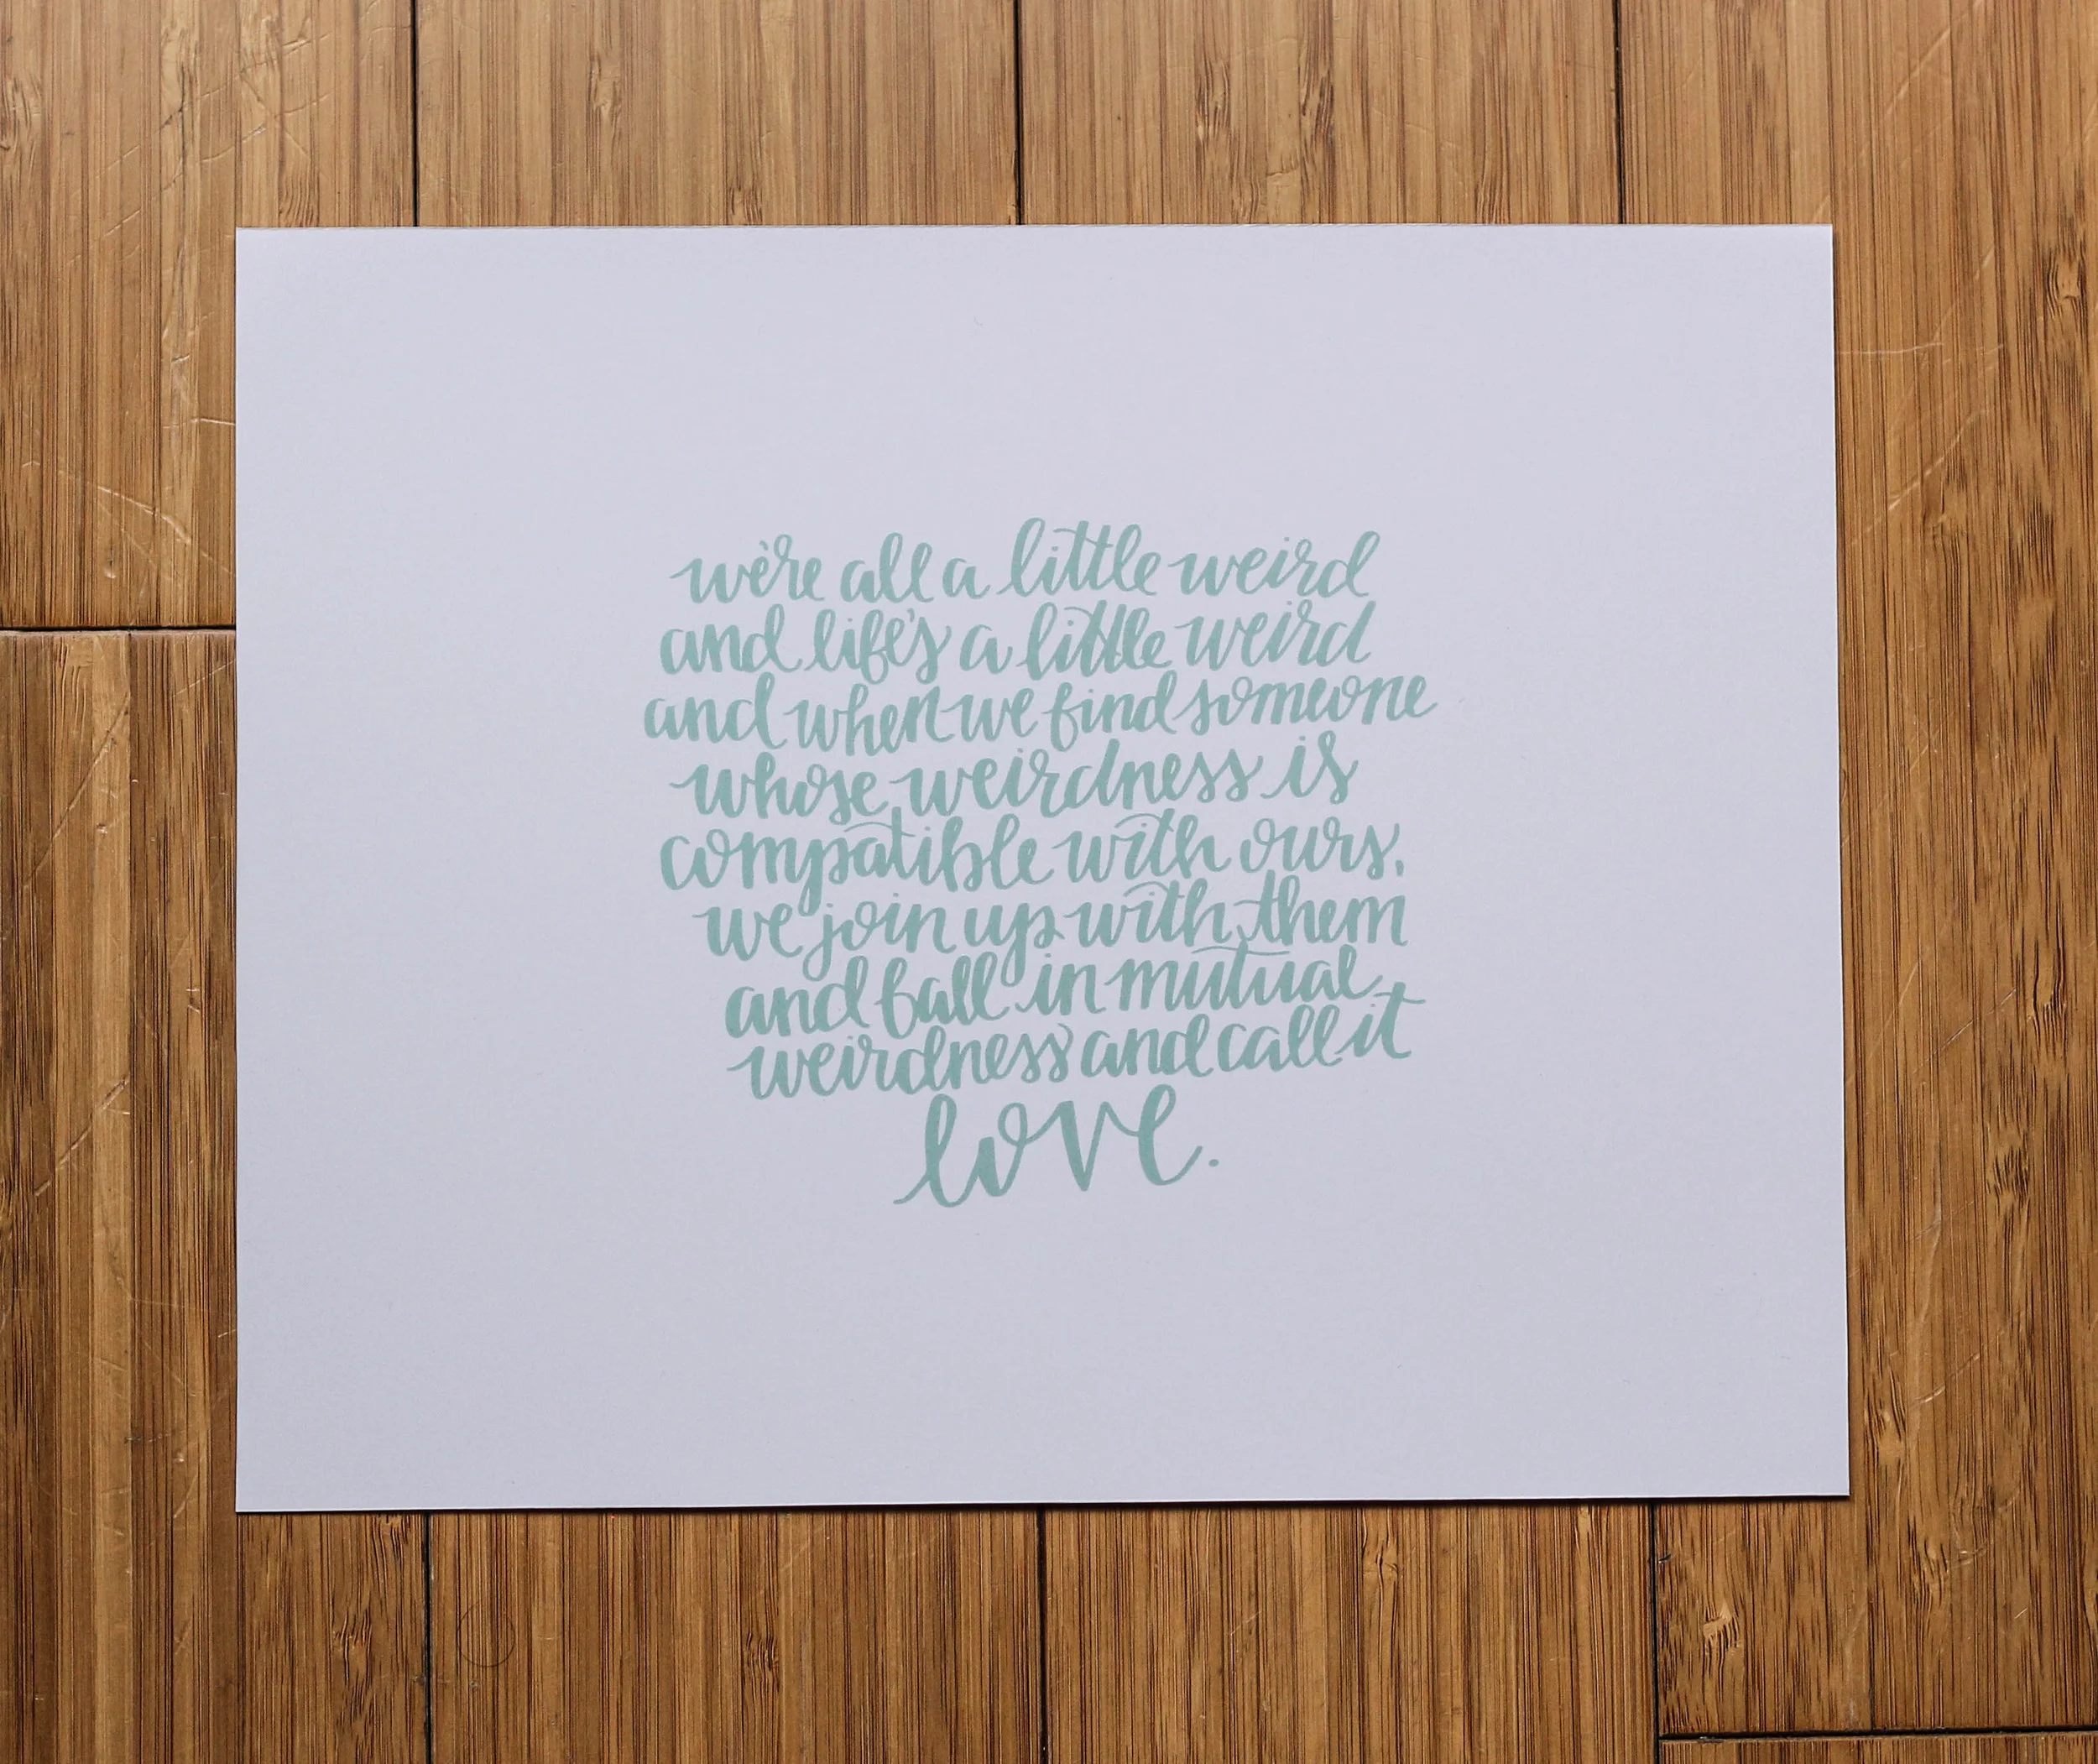 we're all a little weird
and life's a little weird
and when we find someone
whose weirdness is
compatible with ours,
we join up with them
and fall in mutual
weirdness and call it
love.